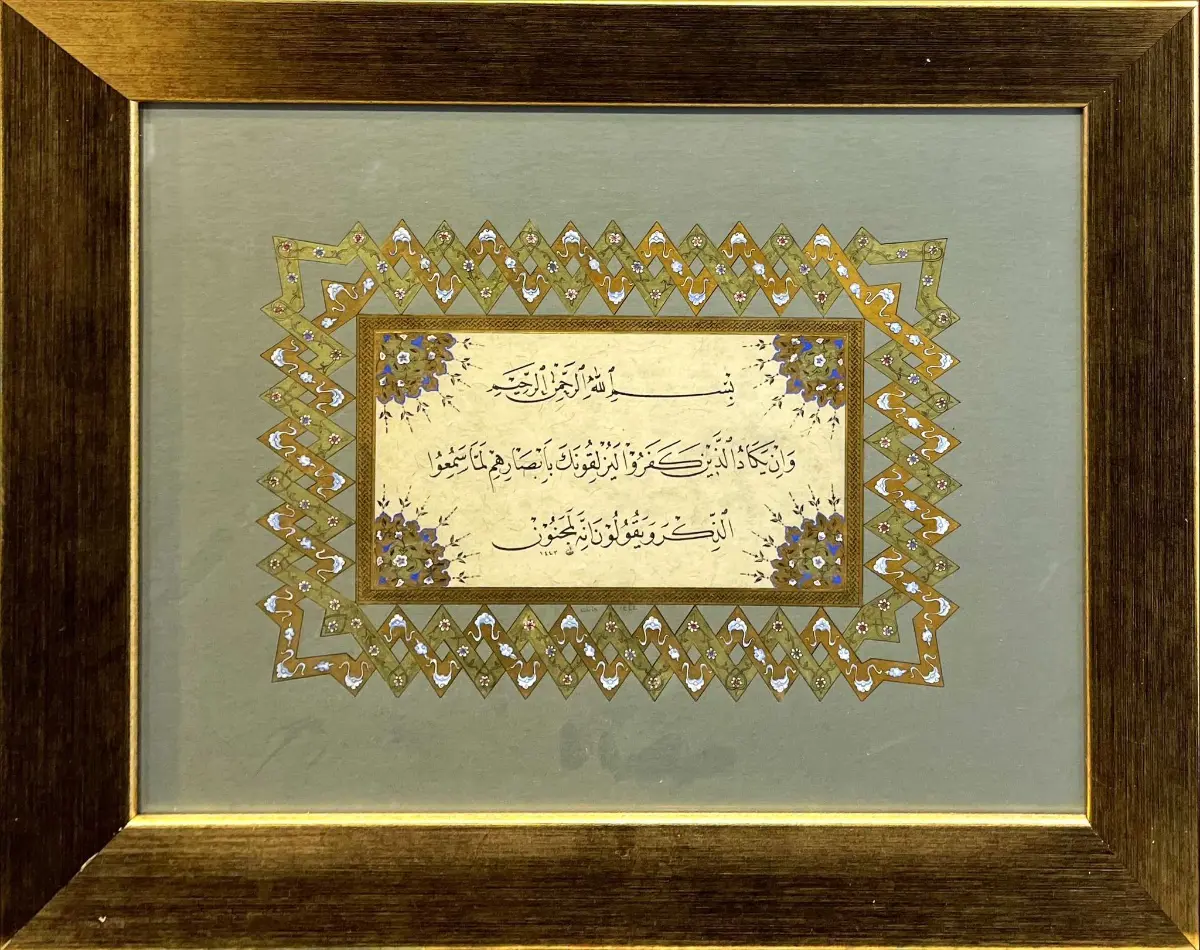 بِسْمِ ٱللّٰهِ ٱلرَّحْمٰنِ ٱلرَّحِيمِ
وَاِنْ يَكَادُ ٱلَّذِينَ كَفَرُوْا لَيُزْلِقُونَكَ بِاَبْصَارِهِمْ لَمَّا سَمِعُوا
ٱلذِّكْرَ وَيَقُولُوْنَ اِنَّهُ لَمَجْنُوْنٌ
١٤٤٣